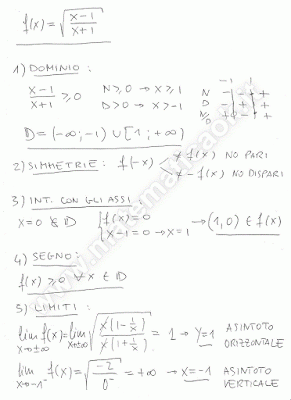 f(x) = √((x-1)/(x+1))
1) DOMINIO :
(x-1)/(x+1) ≥ 0   N ≥ 0 → x ≥ 1   D > 0 → x > -1
-1   1
N - - +
D - + +
N/D + - +
D = (-∞; -1) ∪ [1; +∞)
2) SIMMETRIE : f(-x) ≠ f(x) NO PARI
≠ -f(x) NO DISPARI
3) INT. CON GLI ASSI
x=0 ∉ D   { f(x) = 0   x-1=0 → x=1 → (1,0) ∈ f(x)
4) SEGNO :
f(x) ≥ 0 ∀ x ∈ D
5) LIMITI :
lim x→±∞ f(x) = lim x→±∞ √(x(1-1/x)/x(1+1/x)) = 1 → y=1 ASINTOTO ORIZZONTALE
lim x→-1⁻ f(x) = √(-2/0⁻) = +∞ → x=-1 ASINTOTO VERTICALE